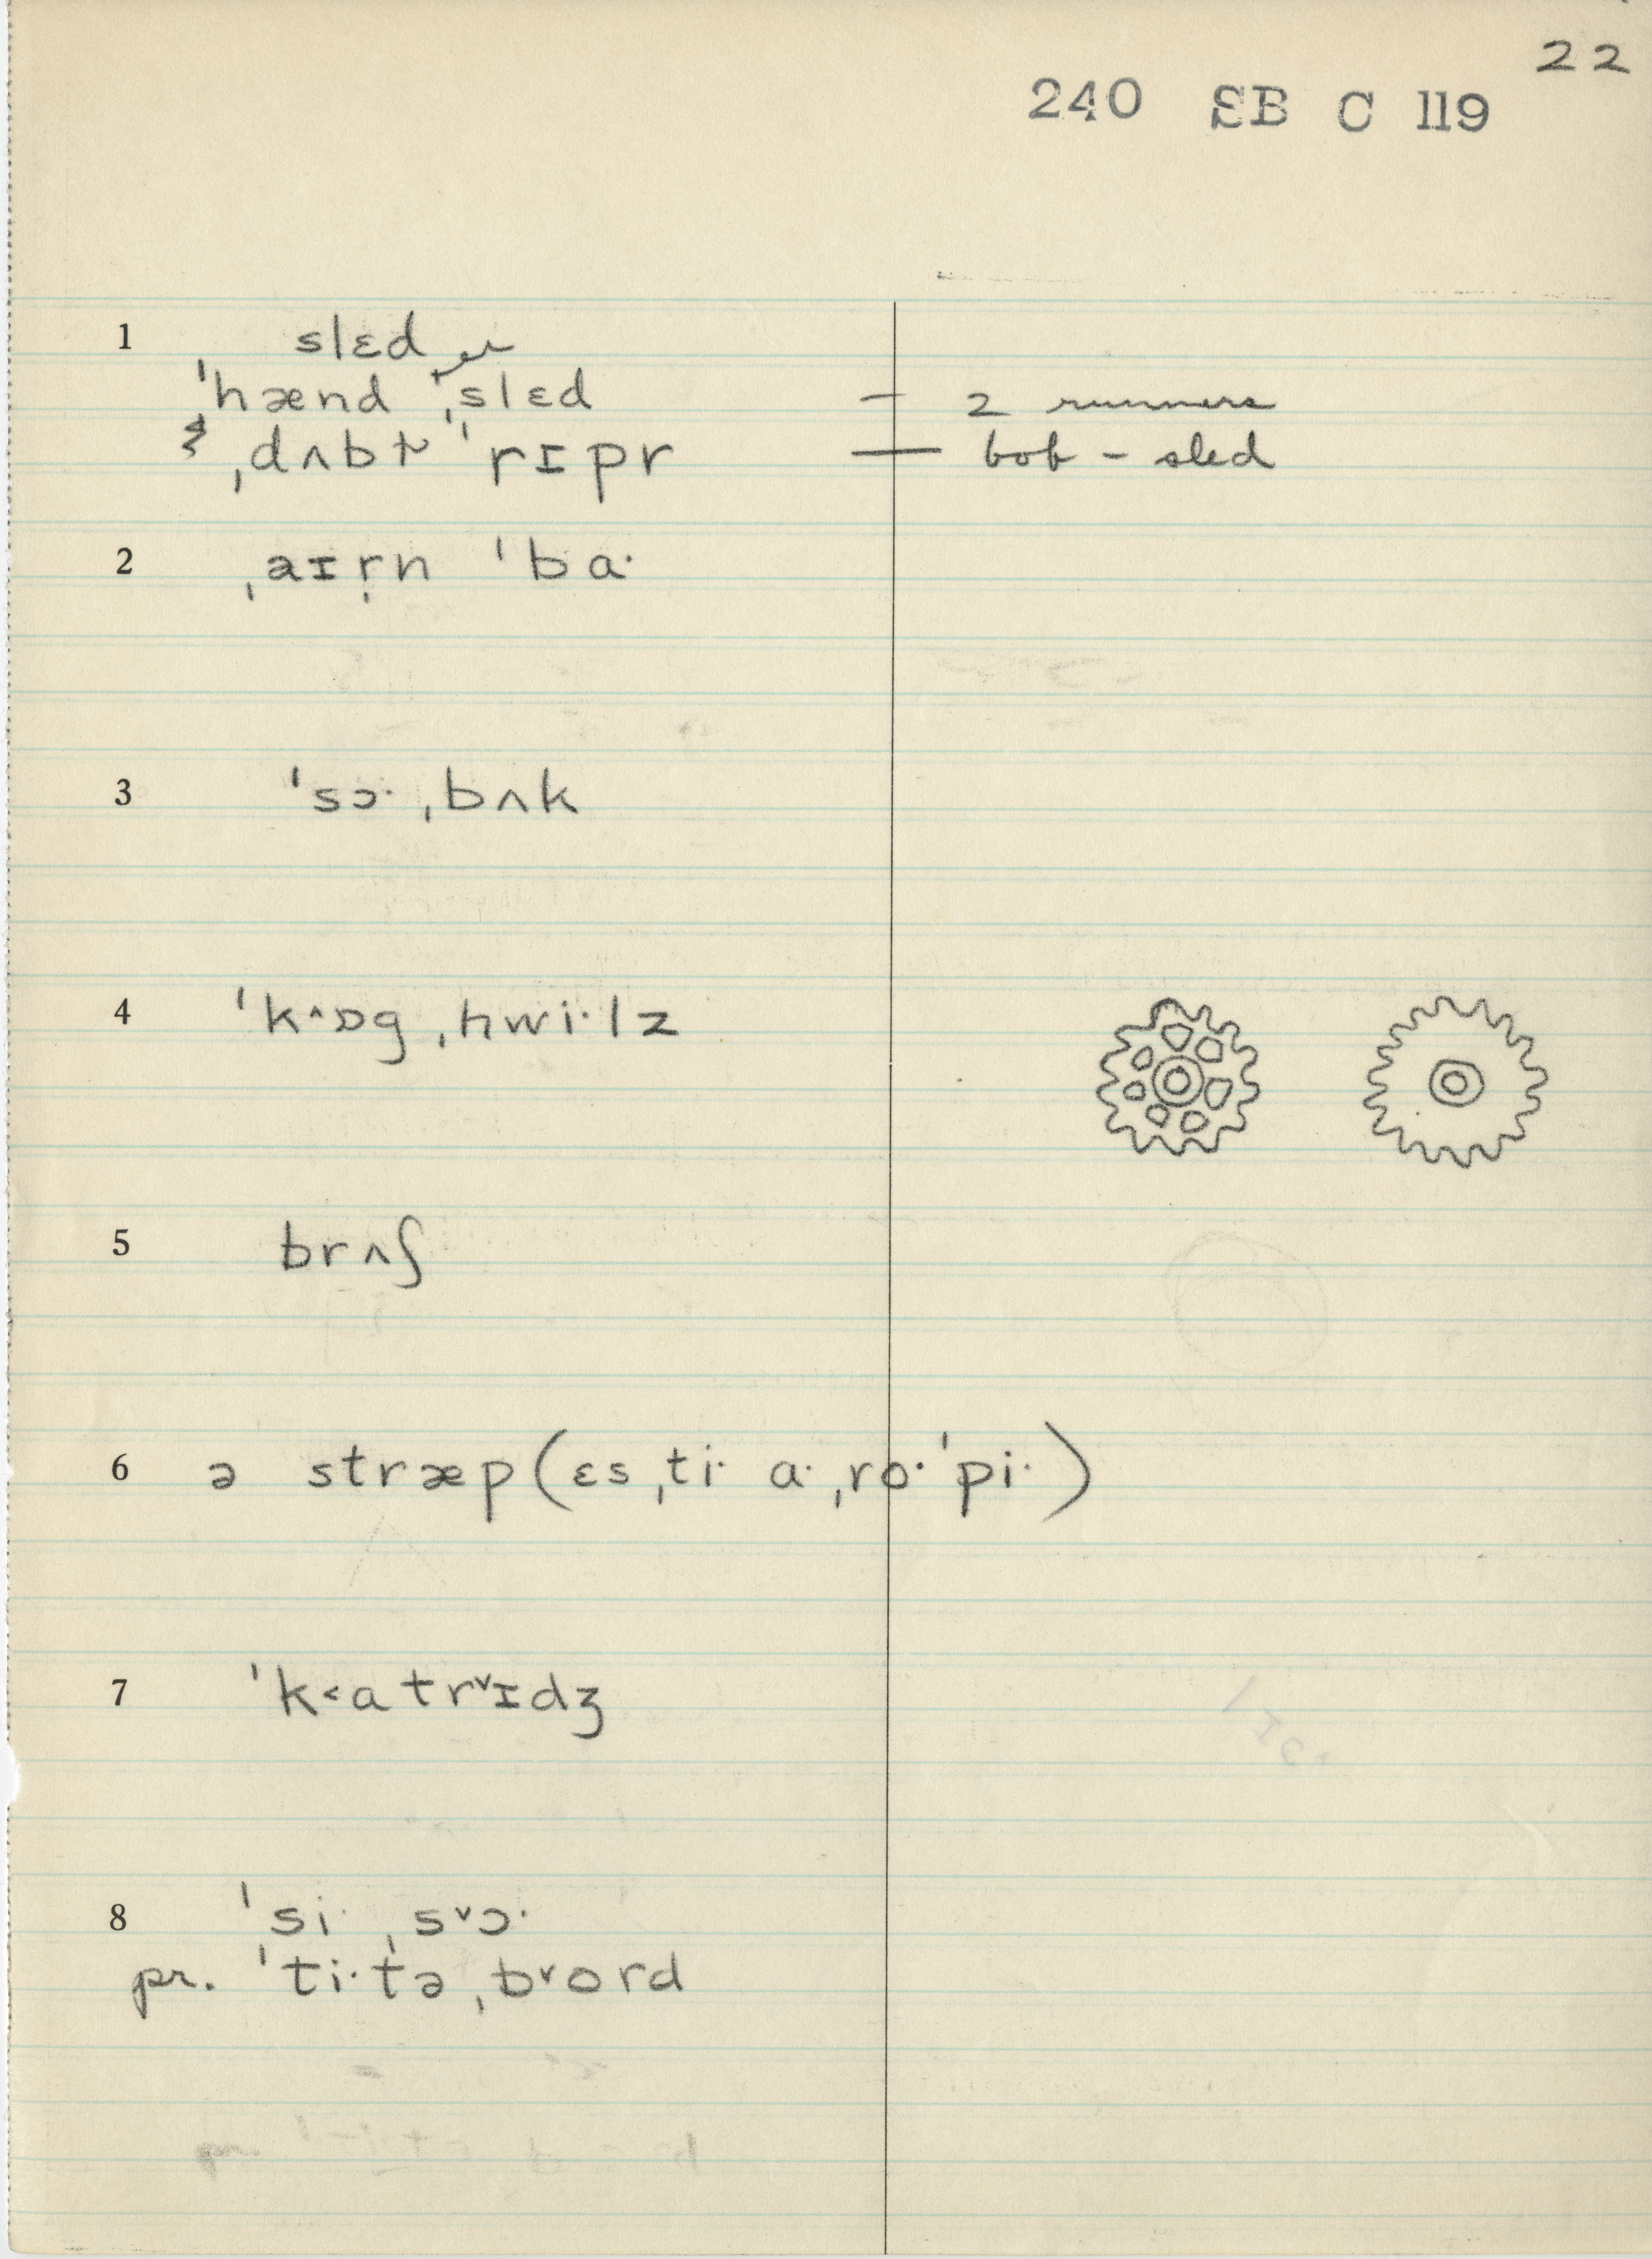 22
240 SB C 119
1 slɛd
ˈhænd ˌslɛd — 2 runners
ˌdʌbɫ ˈrɪpr — bob-sled
2 ˌaɪr̩n ˈba·
3 ˈsɔ· ˌbʌk
4 ˈk^ɒg ˌhwi·lz
5 brʌʃ
6 ə stræp (ɛs ˌti· a· ˌro· ˈpi·)
7 ˈk˂atr˅ɪdʒ
8 ˈsi· ˌs˅ɔ·
pr. ˈti·tə ˌb˅ord